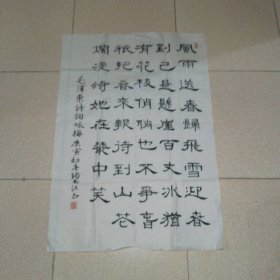 風雨送春歸飛雪迎春
到已是懸崖百丈冰猶
有花枝俏俏也不爭春
祇把春來報待到山花
爛漫時她在叢中笑
毛澤東詩詞咏梅庚寅初冬